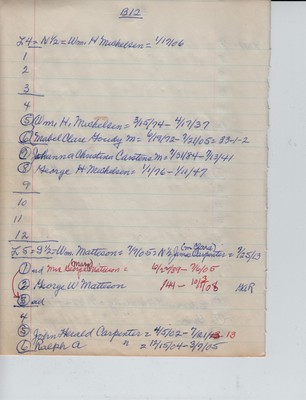 B12
L4 = N½ = Wm. H Michelsen = 1/17/06
1
2
3
4
5 Wm. H. Michelsen = 3/15/74 - 4/17/37
6 Mabel Clare Goudy M = 4/19/72 - 7/21/05 = 33-1-2
7 Johanna Christina Carstens M =
8 George H Michelsen = 1/1/76 - 1/11/47
9
10
11
12
L5 = S½ = Wm. Mattison = 7/9/05 = N½ Carpenter = 7/25/13
1 and Mrs George Mattison =
2 George W Mattison
3 and
4
5 John Harold Carpenter = 4/5/02 - 13
6 Ralph A " = 12/15/04 - 3/9/05